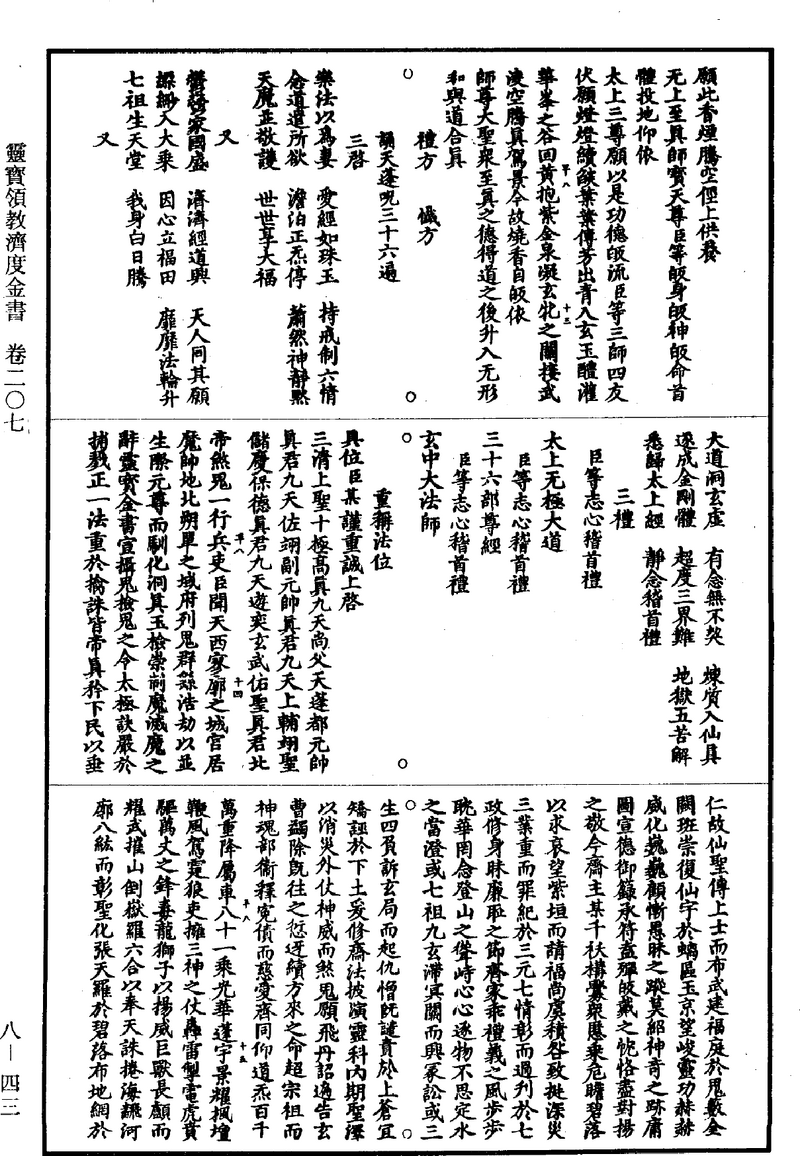 靈寶領教濟度金書 卷二〇七
願此香煙騰空徑上供養
无上至眞師寶天尊臣等皈身皈神皈命首
體投地仰依
太上三尊願以是功德皈流臣等三師四友
伏願燈燈續燄葉葉傳芳出青入玄玉醴灌
華峯之谷回黃抱紫金泉凝玄牝之關接武
淩空騰眞駕景今故燒香自皈依
師尊大聖衆至眞之德得道之後升入无形
和與道合眞
禮方 懺方
誦天蓬呪三十六遍
三啓
樂法以爲妻 愛經如珠玉 持戒制六情
念道遣所欲 澹泊正炁停 蕭然神靜默
天魔並敬護 世世享大福
又
鬱鬱家國盛 濟濟經道興 天人同其願
縹緲入大乘 因心立福田 靡靡法輪升
七祖生天堂 我身白日騰
又
大道洞玄虛 有念無不契 煉質入仙眞
遂成金剛體 超度三界難 地獄五苦解
悉歸太上經 靜念稽首禮
三禮
臣等志心稽首禮
太上无極大道
臣等志心稽首禮
三十六部尊經
臣等志心稽首禮
玄中大法師
重稱法位
具位臣某謹重誠上啓
三清上聖十極高眞九天尚父天蓬都元帥
眞君九天佐翊副元帥眞君九天上輔翊聖
儲慶保德眞君九天遊奕玄武佑聖眞君北
帝煞鬼一行兵吏臣聞天西寥廓之城宮居
魔帥地北朔單之域府列鬼群緜浩劫以並
生際元尊而馴化洞眞玉檢崇制魔滅魔之
辭靈寶金書宣攝鬼檢鬼之令太極訣嚴於
捕戮正一法重於擒誅皆帝眞矜下民以垂
仁故仙聖傳上士而布武建福庭於鬼藪金
闕班崇復仙宇於螭區玉京望峻靈功赫赫
威化巍巍顧慚愚昧之蹤莫紹神奇之跡庸
圖宣德御籙承符蓋殫皈戴之忱恪盡對揚
之敬今齋主某千袄構釁衆慝乘危瞻碧落
以求哀望紫垣而請福尚虞積咎致挻深災
三業重而罪紀於三元七情彰而過刋於七
政修身昧廉耻之節齊家乖禮義之風步步
眺華罔念登山之聳峙心心逐物不思定水
之當澄或七祖九玄滯冥關而興冢訟或三
生四負訴玄局而起仇憎旣譴責於上蒼宜
矯誣於下土爰修齋法披演靈科內期聖澤
以消災外仗神威而煞鬼願飛丹詔遍告玄
曹蠲除旣往之愆迓續方來之命超宗祖而
神魂部衞釋寃債而慈愛齊同仰道炁百千
萬重降屬車八十一乘光華蓬宇景耀楓壇
鞭風駕霓狼吏擁三神之仗轟雷掣電虎賁
驅萬丈之鋒毒龍獅子以揚威巨獸長顱而
耀武摧山倒嶽羅六合以奉天誅捲海飜河
廓八紘而彰聖化張天羅於碧落布地網於
八－四三